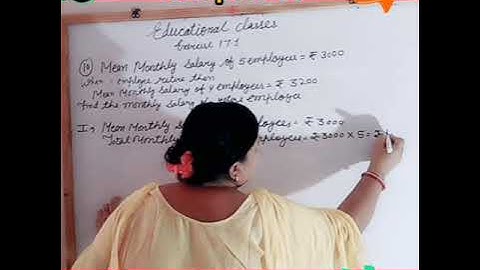 Educational classes
Exercise 17.1
(10) Mean Monthly Salary of 5 employees = ₹ 3000
employee retire then
Mean Monthly Salary of 4 employees = ₹ 3200
find the monthly salary
I → Mean Monthly = ₹ 3000
Total Monthly = ₹ 3000 × 5 =